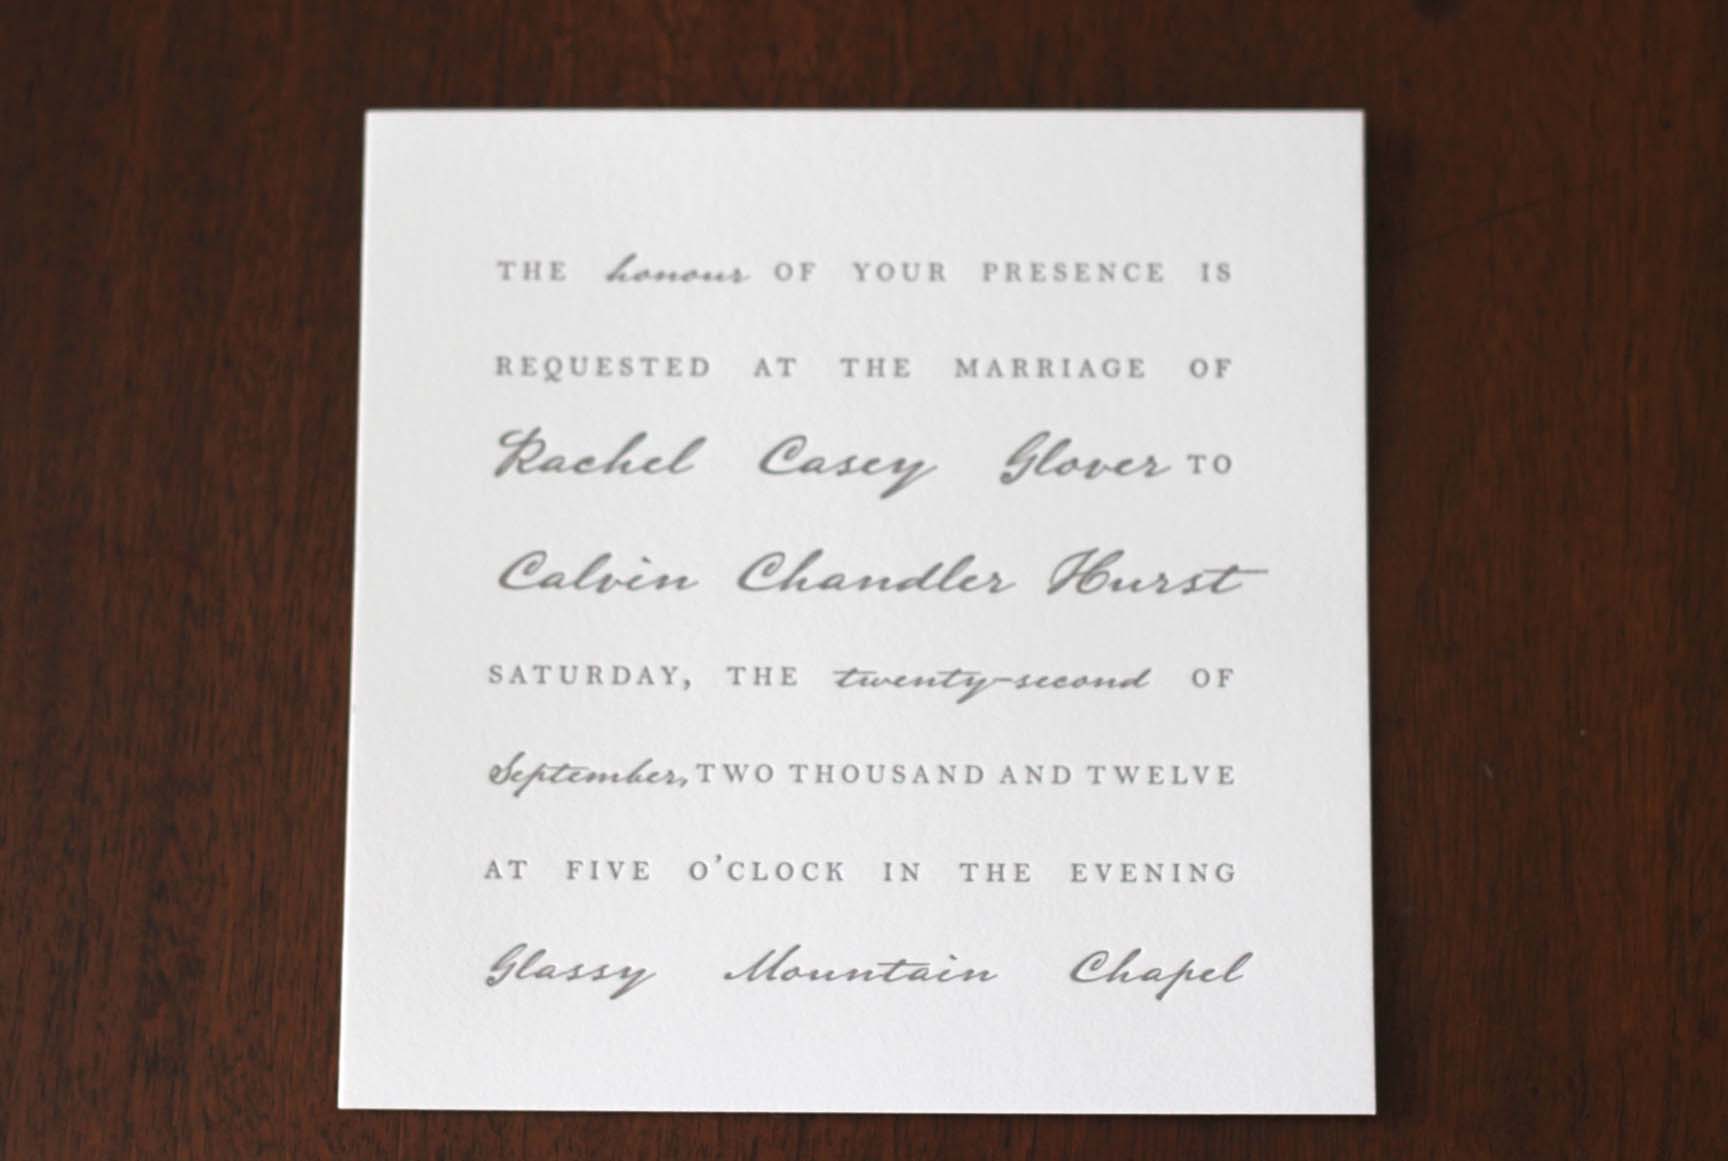 THE honour OF YOUR PRESENCE IS
REQUESTED AT THE MARRIAGE OF
Rachel Casey Glover TO
Calvin Chandler Hurst
SATURDAY, THE twenty-second OF
September, TWO THOUSAND AND TWELVE
AT FIVE O'CLOCK IN THE EVENING
Glassy Mountain Chapel